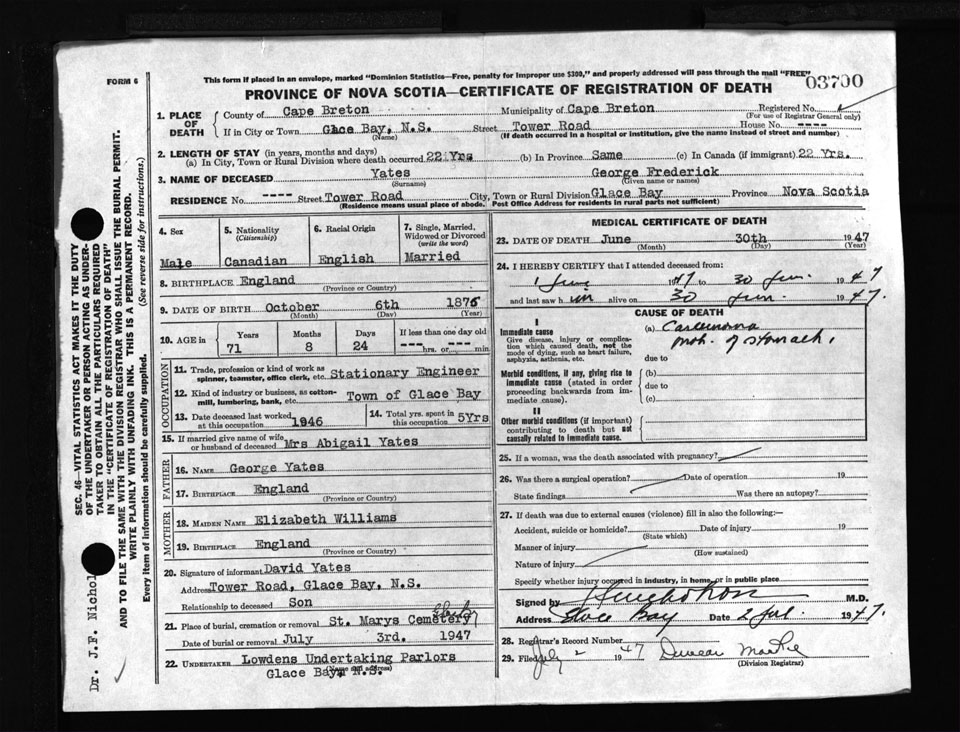 FORM 6
This form if placed in an envelope, marked "Dominion Statistics—Free, penalty for improper use $300," and properly addressed will pass through the mail "FREE"
03700
PROVINCE OF NOVA SCOTIA—CERTIFICATE OF REGISTRATION OF DEATH
1. PLACE OF DEATH
County of Cape Breton Municipality of Cape Breton Registered No.
(For use of Registrar General only)
If in City or Town Glace Bay, N.S. Street Tower Road House No. ----
(Name) (If death occurred in a hospital or institution, give the name instead of street and number)
2. LENGTH OF STAY (in years, months and days)
(a) In City, Town or Rural Division where death occurred 22 Yrs (b) In Province Same (c) In Canada (if immigrant) 22 Yrs.
3. NAME OF DECEASED Yates George Frederick
(Surname) (Given name or names)
RESIDENCE No. ---- Street Tower Road City, Town or Rural Division Glace Bay Province Nova Scotia
(Residence means usual place of abode. Post Office Address for residents in rural parts not sufficient)
4. Sex
Male
5. Nationality
(Citizenship)
Canadian
6. Racial Origin
English
7. Single, Married, Widowed or Divorced
(write the word)
Married
8. BIRTHPLACE England
(Province or Country)
9. DATE OF BIRTH October 6th 1875
(Month) (Day) (Year)
10. AGE in
Years Months Days If less than one day old
71 8 24 --- hrs. or --- min
OCCUPATION
11. Trade, profession or kind of work as spinner, teamster, office clerk, etc. Stationary Engineer
12. Kind of industry or business, as cotton-mill, lumbering, bank, etc. Town of Glace Bay
13. Date deceased last worked at this occupation 1946
14. Total yrs. spent in this occupation 5Yrs
15. If married give name of wife or husband of deceased Mrs Abigail Yates
FATHER
16. NAME George Yates
17. BIRTHPLACE England
(Province or Country)
MOTHER
18. MAIDEN NAME Elizabeth Williams
19. BIRTHPLACE England
(Province or Country)
20. Signature of informant David Yates
Address Tower Road, Glace Bay, N.S.
Relationship to deceased Son
21. Place of burial, cremation or removal St. Marys Cemetery
Date of burial or removal July 3rd. 1947
22. UNDERTAKER Lowdens Undertaking Parlors
(Name and address)
Glace Bay, N.S.
MEDICAL CERTIFICATE OF DEATH
23. DATE OF DEATH June 30th 1947
(Month) (Day) (Year)
24. I HEREBY CERTIFY that I attended deceased from:
1 June 1947 to 30 Jun. 1947
and last saw him alive on 30 Jun. 1947.
CAUSE OF DEATH
I
Immediate cause
Give disease, injury or complication which caused death, not the mode of dying, such as heart failure, asphyxia, asthenia, etc.
(a) Carcinoma
of stomach.
due to
Morbid conditions, if any, giving rise to immediate cause (stated in order proceeding backwards from immediate cause).
(b)
due to
(c)
II
Other morbid conditions (if important) contributing to death but not causally related to immediate cause.
25. If a woman, was the death associated with pregnancy?
26. Was there a surgical operation? Date of operation 19
State findings Was there an autopsy?
27. If death was due to external causes (violence) fill in also the following:—
Accident, suicide or homicide? Date of injury 19
(State which)
Manner of injury
(How sustained)
Nature of injury
Specify whether injury occurred in industry, in home, or in public place
Signed by M.D.
Address Glace Bay Date 2 Jul. 1947.
28. Registrar's Record Number
29. Filed July 2 1947 Duncan
(Division Registrar)
SEC. 46—VITAL STATISTICS ACT MAKES IT THE DUTY
OF THE UNDERTAKER OR PERSON ACTING AS UNDER-
TAKER TO OBTAIN ALL THE PARTICULARS REQUIRED
IN THE "CERTIFICATE OF REGISTRATION OF DEATH"
AND TO FILE THE SAME WITH THE DIVISION REGISTRAR WHO SHALL ISSUE THE BURIAL PERMIT.
WRITE PLAINLY WITH UNFADING INK. THIS IS A PERMANENT RECORD.
Every item of Information should be carefully supplied. (See reverse side for instructions.)
Dr. J.F. Nichol